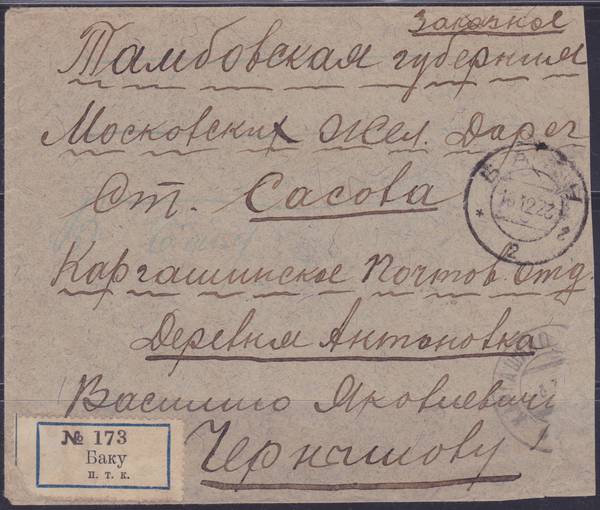 Заказное
Тамбовская губерния
Московских Жел. Дорег
Ст. Сасова
БАКУ
16 12 23
Каргашинское Почтов Отд.
Деревня Антановка
Василию Яковлевичу
Чернышову
№ 173
Баку
п. т. к.